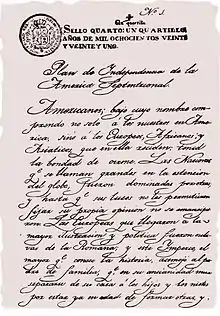 Nº 1
Un quartillo
SELLO QUARTO: UN QUARTILLO
AÑOS DE MIL OCHOCIENTOS VEINTE
Y VEINTE Y UNO.
Plan de Independencia de la
America Septentrional
Americanos; bajo cuyo nombre com-
prendo no solo a los nacidos en Am-
erica, sino a los Europeos, Africanos y
Asiaticos, que en ella residen: tened
la bondad de oirme. Las Naciones
q.e se llaman grandes en la extension
del globo, fueron dominadas por otras;
y hasta q.e sus luces no les permitieron
fijar su propia opinion no se emanciparon.
Las Europeas que llegaron a la
mayor ilustracion y politica, fueron escla-
vas de la Romana; y este Imperio, el
mayor q.e conoce la historia, asemejó al pa-
dre de familia, q.e en su ancianidad mira
separarse de su casa a los hijos y los nietos
por estar ya en edad de formar otras, y